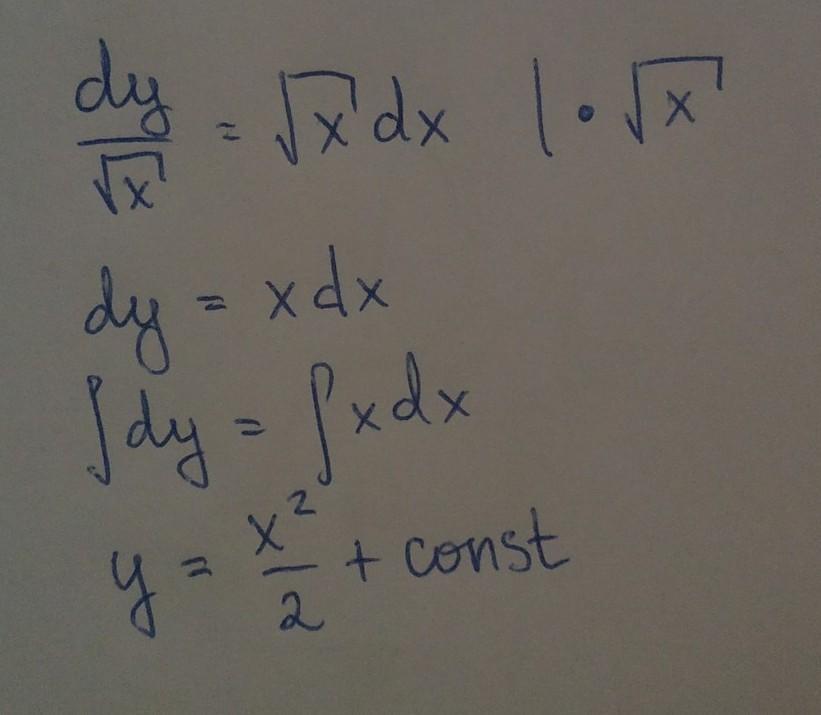 dy/√x = √x dx | • √x
dy = x dx
∫dy = ∫x dx
y = x²/2 + const